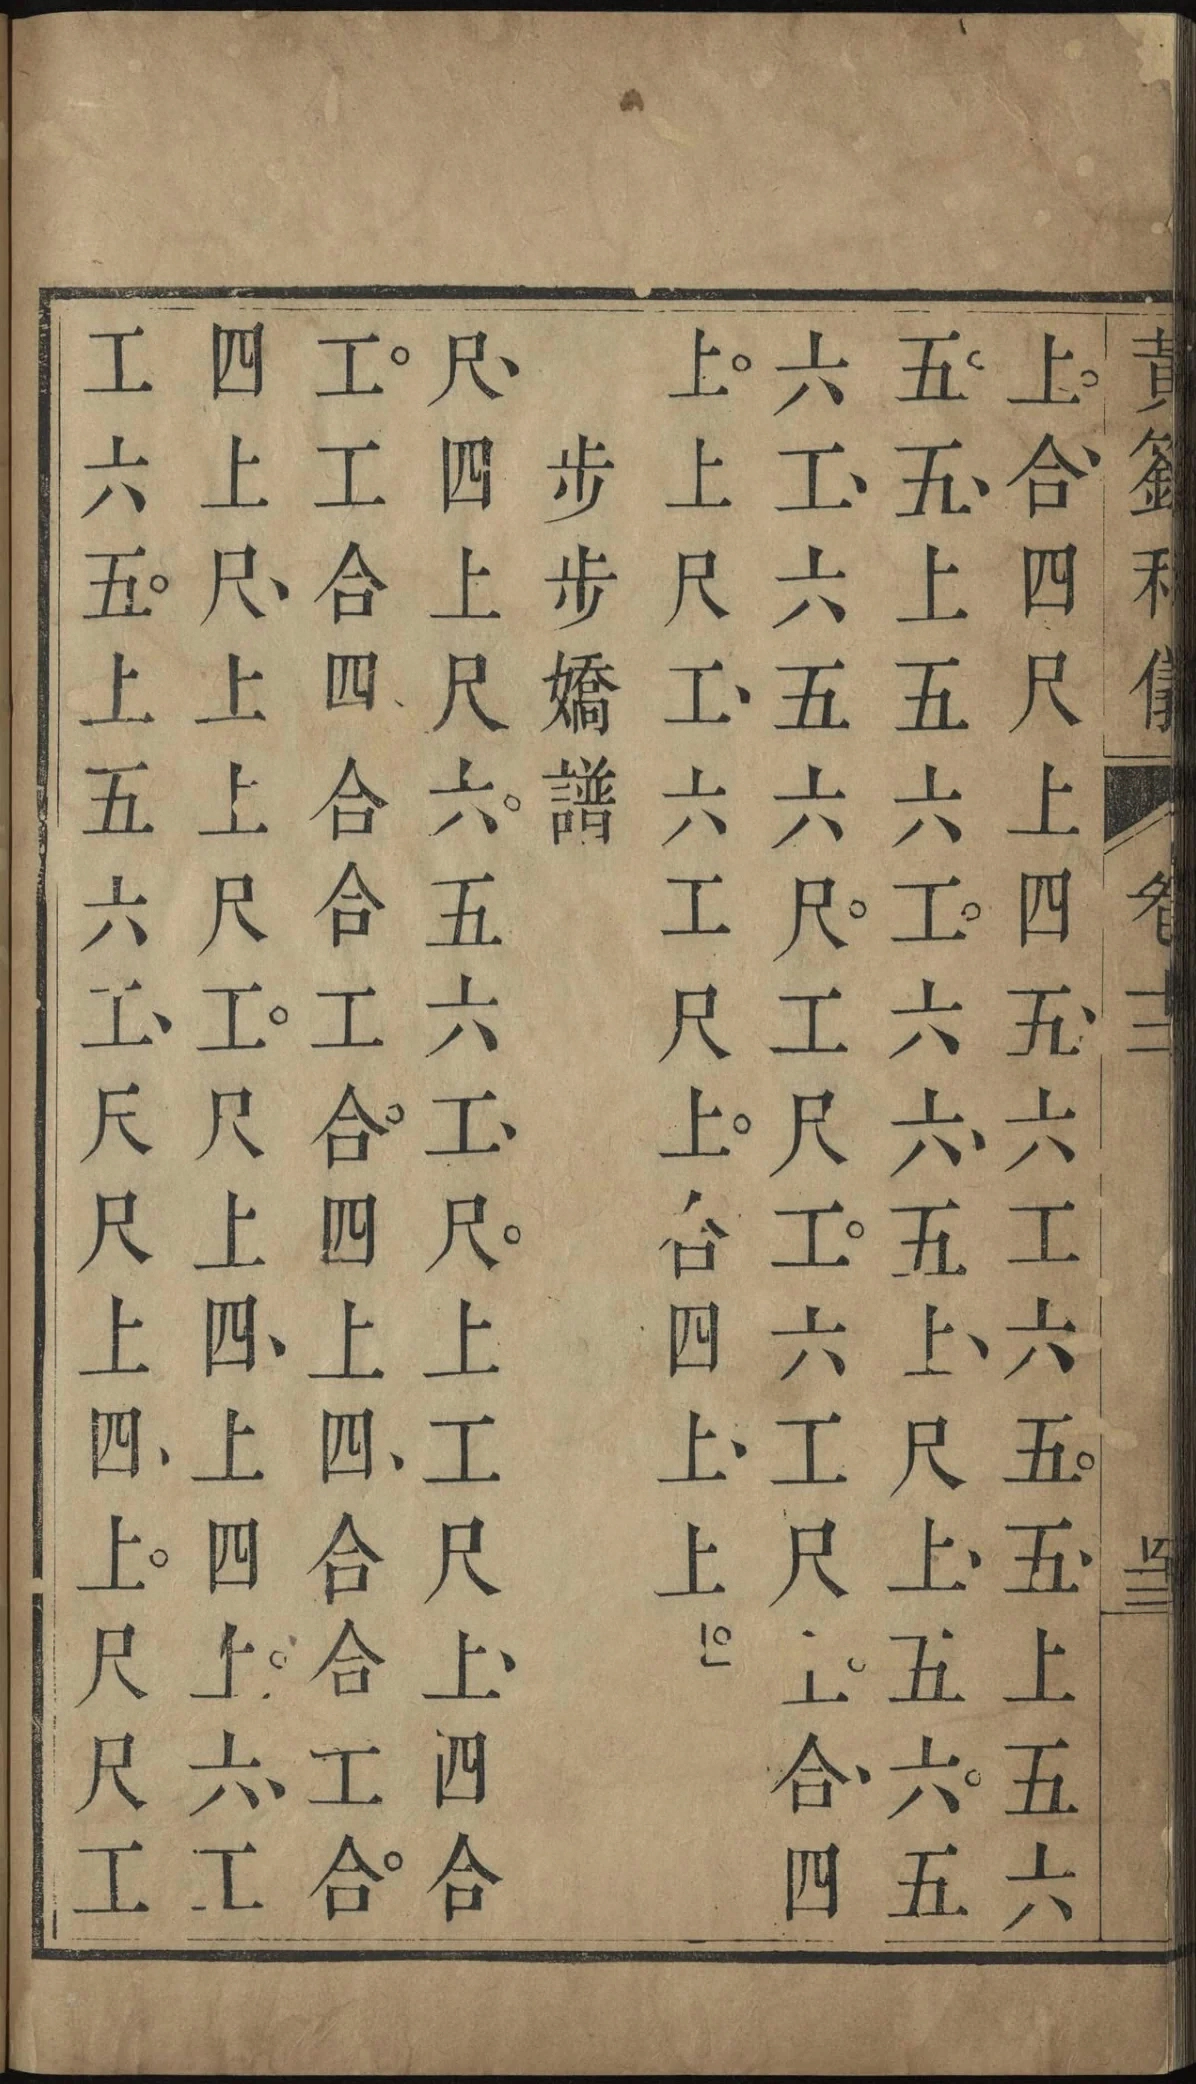 黃籙科儀 卷十二 四三
上。合、四尺上四五、六工六五。五、上五六
五。五、上五六工。六六、五上、尺上、五六。五
六工、六五六尺。工尺工。六工尺工。合、四
上。上尺工、六工尺上。合四上、上四。
步步嬌譜
尺、四上尺六。五六工、尺。上工尺上、四合
工。工合四、合合工合。四上四、合合工合。
四上尺、上上尺工。尺上四、上四上。六、工
工六五。上五六工、尺尺上四、上。尺尺工